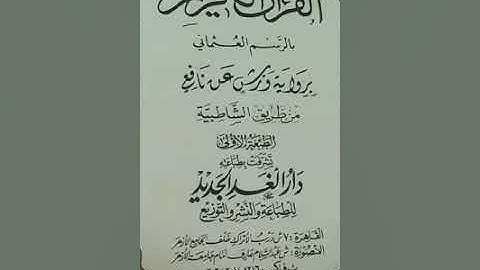 القرآن الكريم
بالرسم العثماني
برواية ورش عن نافع
من طريق الشاطبية
الطبعة الأولى
تشرفت بطباعته
دار الغد الجديد
للطباعة والنشر والتوزيع
القاهرة : ٧ ش درب الأتراك خلف الجامع الأزهر
المنصورة : ش عبد السلام عارف أمام جامعة الأزهر